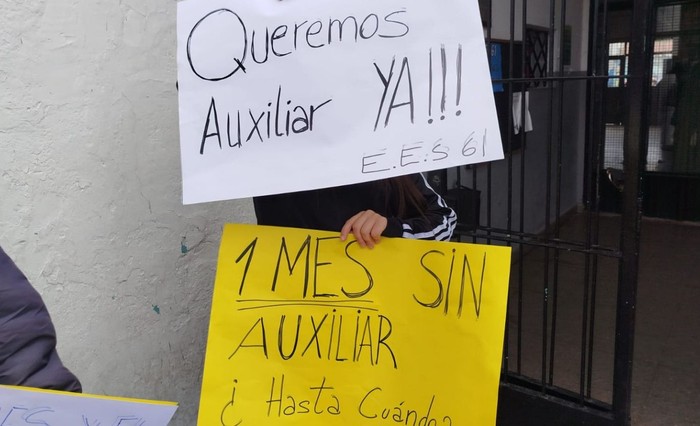 Queremos
Auxiliar YA!!!
E.E.S 61
1 MES SIN
AUXILIAR
¿ Hasta Cuándo?